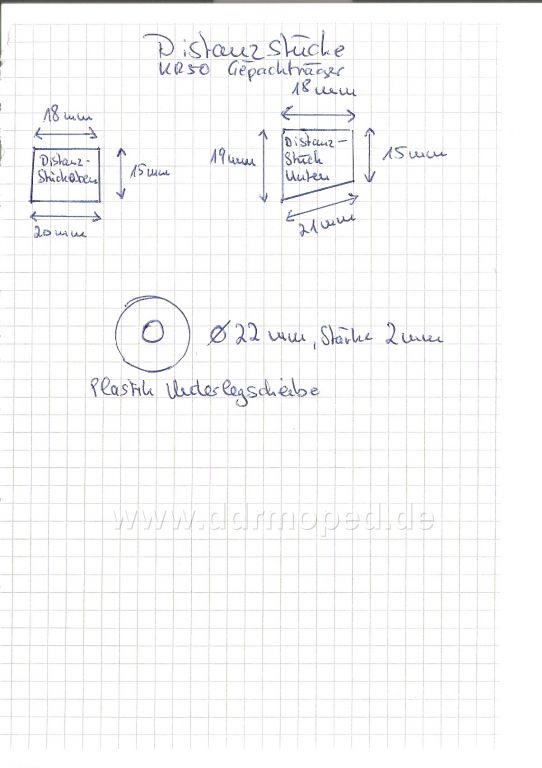 Distanzstücke
KR50 Gepächträger
18mm
Distanz-
Stück oben
15mm
20mm
18mm
19mm
Distanz-
Stück
Unten
15mm
21mm
Ø 22 mm, Stärke 2mm
Plastik Unterlegscheibe
www.ddrmoped.de